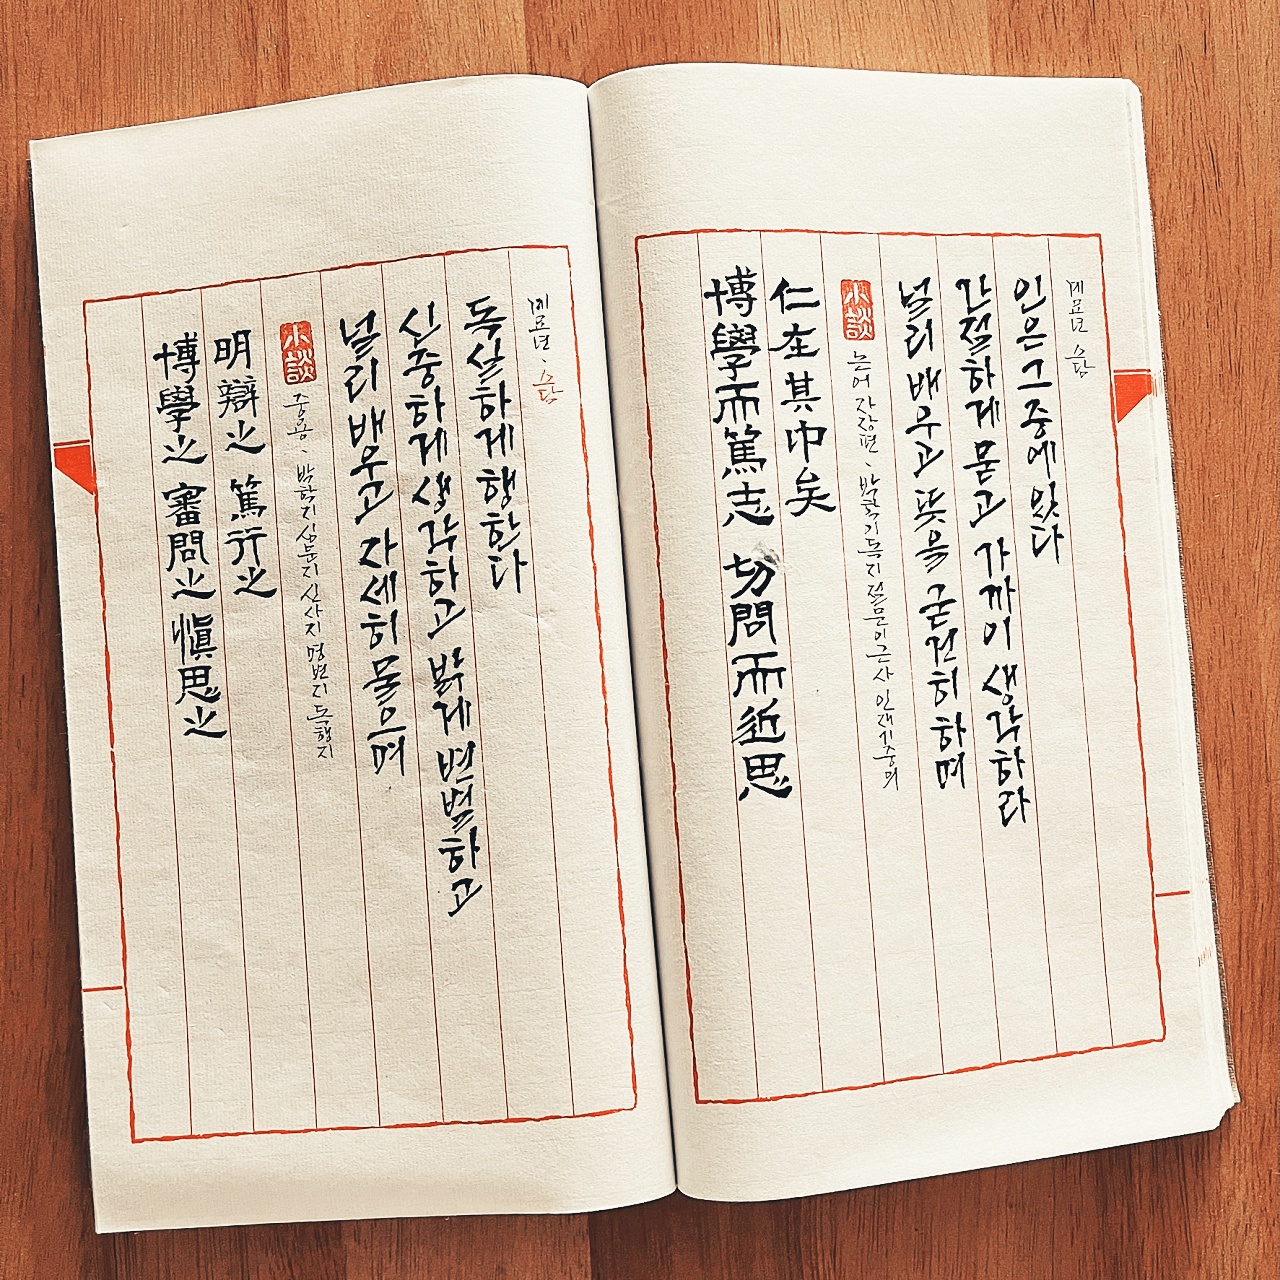 博學之 審問之 愼思之
明辯之 篤行之
小談
중용、박학지 심문지 신사지 명변지 독행지
널리 배우고 자세히 물으며
신중하게 생각하고 밝게 변별하고
독실하게 행한다
계묘년、소담
博學而篤志 切問而近思
仁在其中矣
小談
논어 자장편、박학이독지 절문이근사 인재기중의
널리 배우고 뜻을 굳건히 하며
간절하게 묻고 가까이 생각하라
인은 그 중에 있다
계묘년 소담